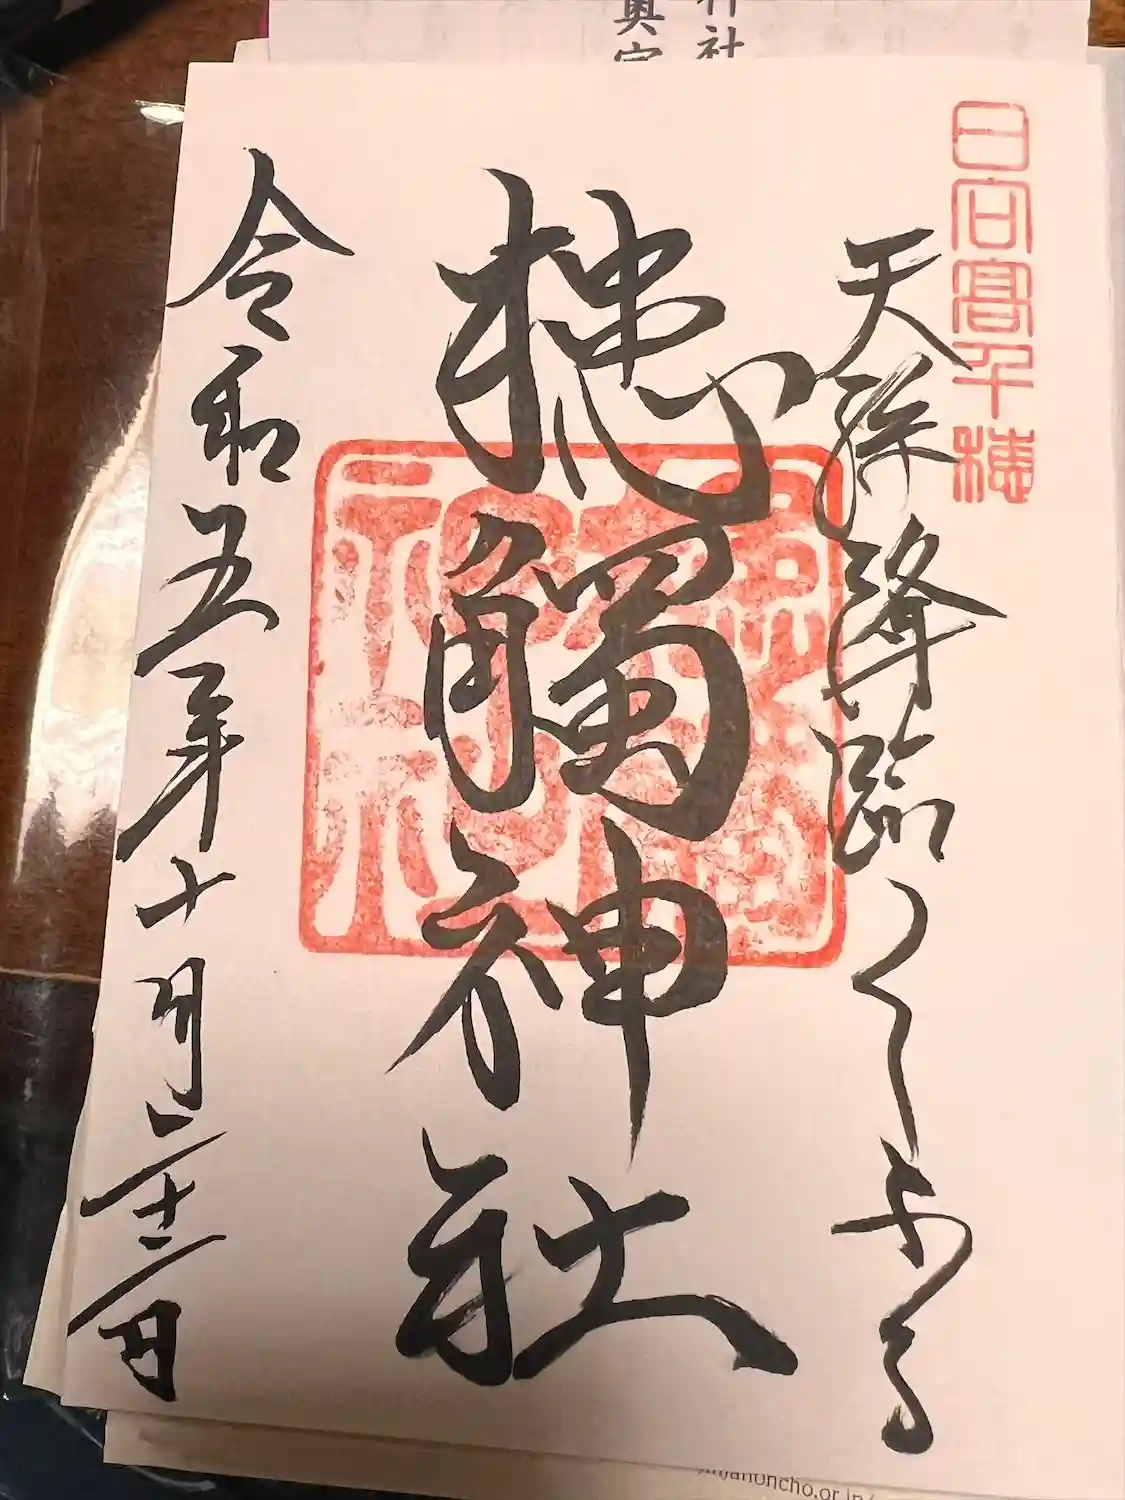 神社
奥宮
日向髙千穂
天孫降臨くしふる
槵觸神社
令和五年十月二十二日